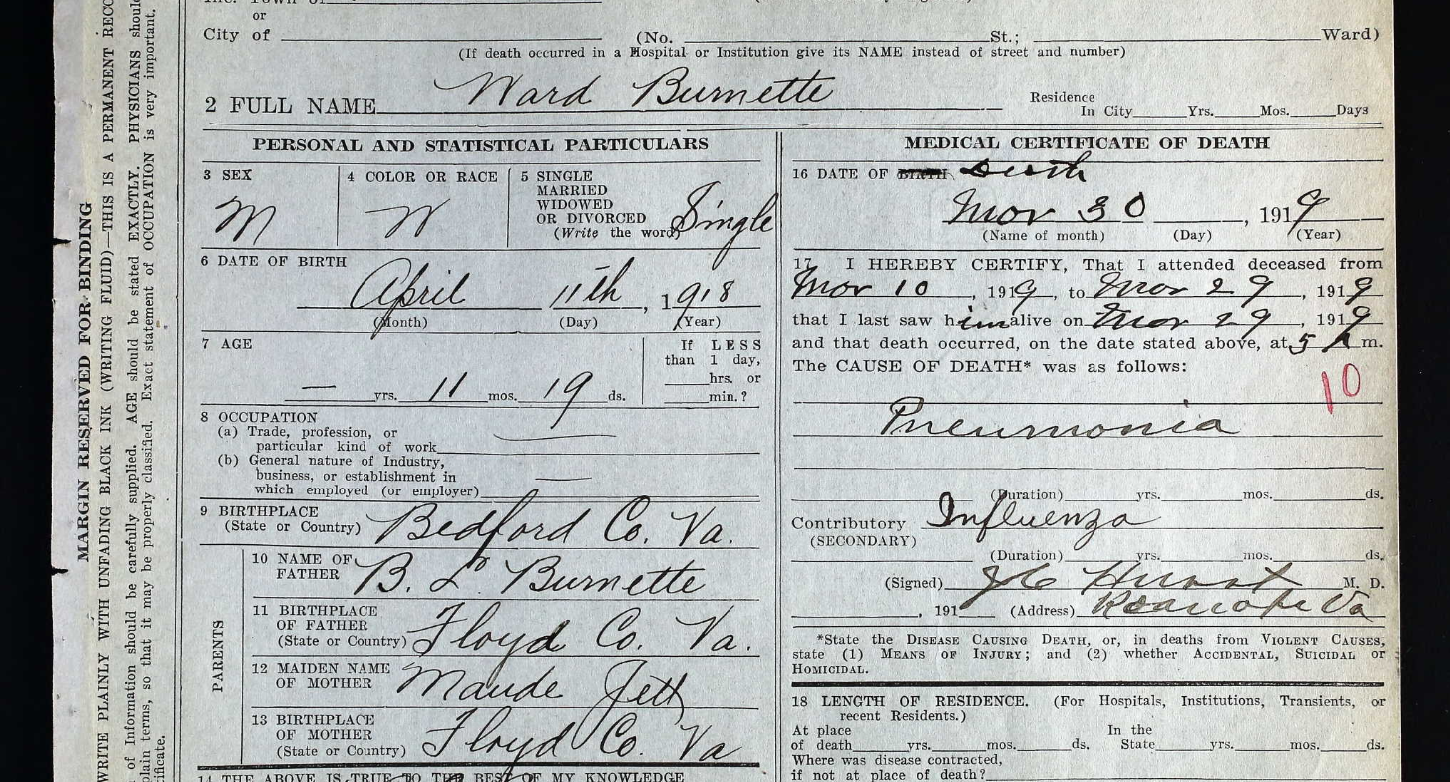 or
City of (No. St.; Ward)
(If death occurred in a Hospital or Institution give its NAME instead of street and number)
2 FULL NAME Ward Burnette
Residence
In City Yrs. Mos. Days
PERSONAL AND STATISTICAL PARTICULARS
3 SEX
M
4 COLOR OR RACE
W
5 SINGLE
MARRIED
WIDOWED
OR DIVORCED
(Write the word) Single
6 DATE OF BIRTH
April 11th, 1918
(Month) (Day) (Year)
7 AGE
— yrs. 11 mos. 19 ds.
If LESS
than 1 day,
hrs. or
min.?
8 OCCUPATION
(a) Trade, profession, or
particular kind of work
(b) General nature of Industry,
business, or establishment in
which employed (or employer)
9 BIRTHPLACE
(State or Country) Bedford Co. Va.
PARENTS
10 NAME OF
FATHER B. L. Burnette
11 BIRTHPLACE
OF FATHER
(State or Country) Floyd Co. Va.
12 MAIDEN NAME
OF MOTHER Maude Jett
13 BIRTHPLACE
OF MOTHER
(State or Country) Floyd Co. Va
14 THE ABOVE IS TRUE TO THE BEST OF MY KNOWLEDGE
MEDICAL CERTIFICATE OF DEATH
16 DATE OF BIRTH Death
Mar 30, 1919
(Name of month) (Day) (Year)
17 I HEREBY CERTIFY, That I attended deceased from
Mar 10, 1919, to Mar 29, 1919
that I last saw him alive on Mar 29, 1919
and that death occurred, on the date stated above, at 5 A m.
The CAUSE OF DEATH* was as follows:
10
Pneumonia
(Duration) yrs. mos. ds.
Contributory Influenza
(SECONDARY)
(Duration) yrs. mos. ds.
(Signed) M. D.
, 191 (Address) Roanoke Va
*State the DISEASE CAUSING DEATH, or, in deaths from VIOLENT CAUSES,
state (1) MEANS OF INJURY; and (2) whether ACCIDENTAL, SUICIDAL or
HOMICIDAL.
18 LENGTH OF RESIDENCE. (For Hospitals, Institutions, Transients, or
recent Residents.)
At place In the
of death yrs. mos. ds. State yrs. mos. ds.
Where was disease contracted,
if not at place of death?
MARGIN RESERVED FOR BINDING
WRITE PLAINLY WITH UNFADING BLACK INK (WRITING FLUID)—THIS IS A PERMANENT
of Information should be carefully supplied. AGE should be stated EXACTLY. PHYSICIANS
plain terms, so that it may be properly classified. Exact statement of OCCUPATION is very important.